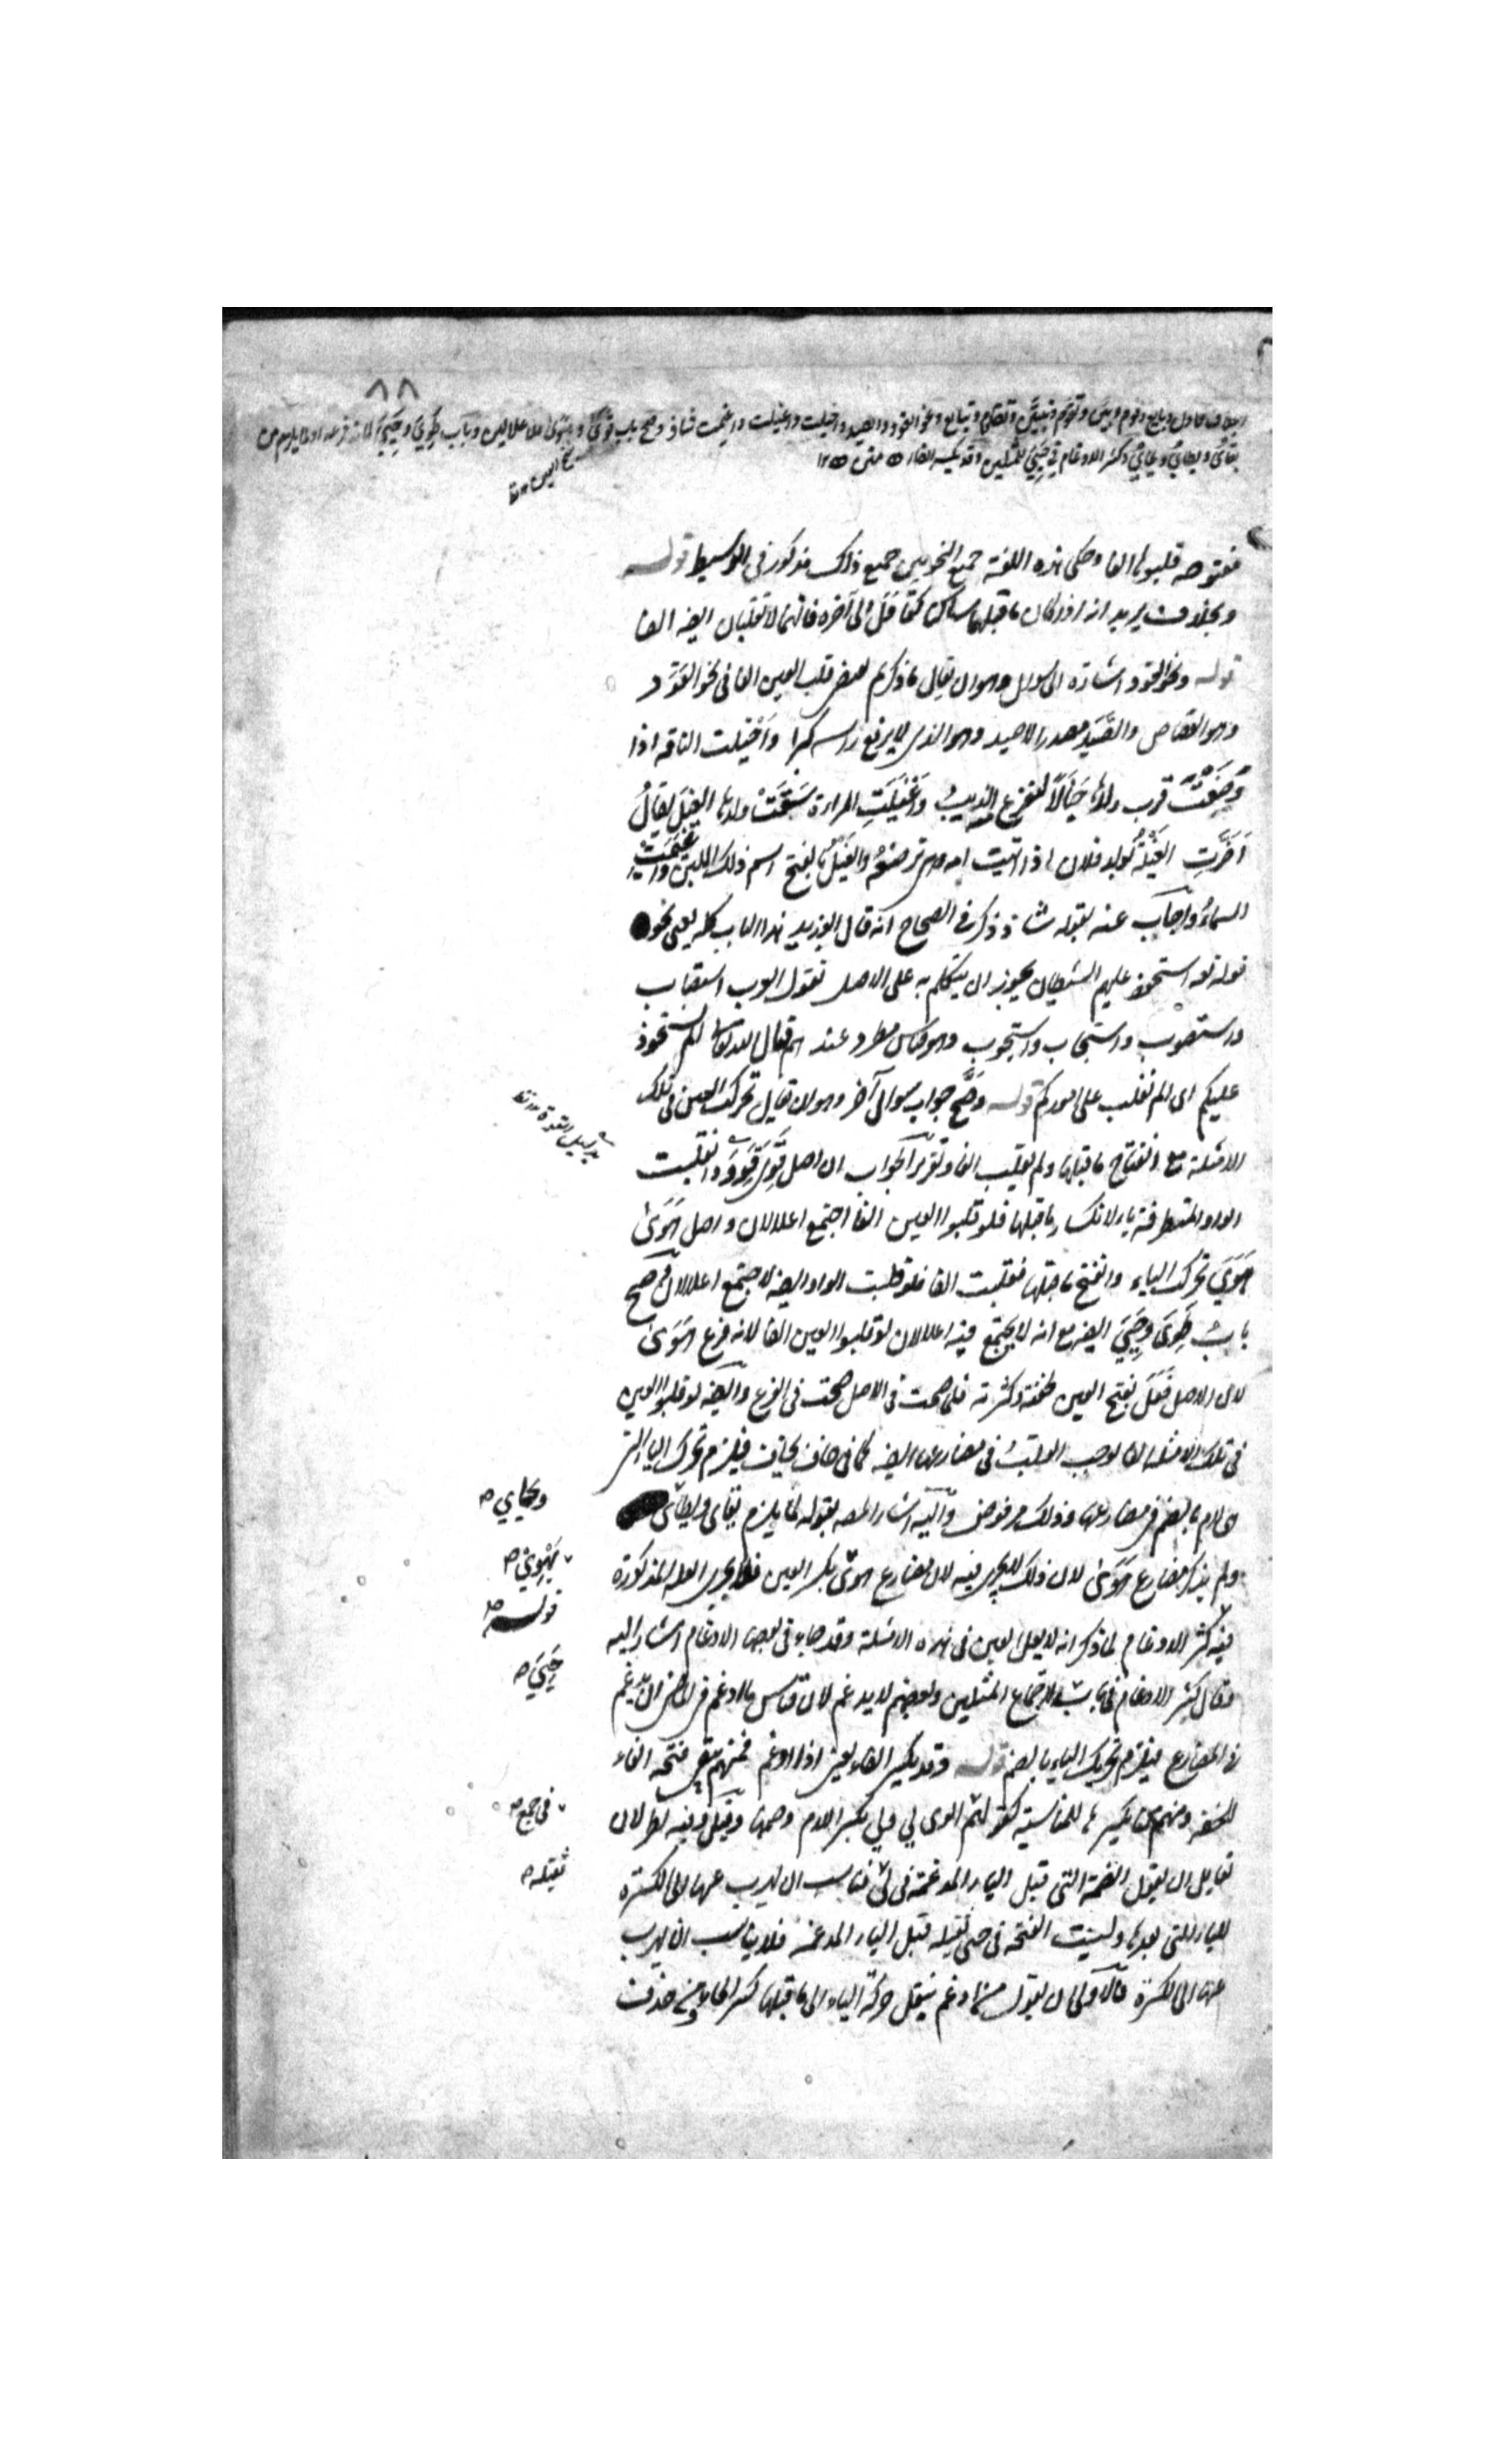 ٨٨
بخلاف قاول وبايع وقوم وبين وتقوم وتبين وتقاول وتبايع ونحو القود والصيد واخيلت واغيلت واغيمت شاذ وصح باب قوي وهوى للاعلالين وباب طوي وحيي لانه فرعه او لما يلزم من
يقاي ويطاي ويحاي وكثر الادغام في حيي للمثلين وقد يكسر الفاء متن
مفتوحة قلبوها الفا وحكى هذه اللغة جميع النحويين جميع ذلك مذكور في الوسيط قوله
وبخلاف يريد انه اذا كان ما قبلها ساكن كقاول الى آخره فانهما لا تقلبان ايضا الفا
قوله ونحو القود اشارة الى سوال وهو ان يقال ما ذكرتم يقتضي قلب العين الفا في نحو القود
وهو القصاص والصيد مصدر الاصيد وهو الذي لا يرفع راسه كبرا وأخيلت الناقة اذا
وضعت قرب ولدها خيالا ليفزع الذيب وأغيلت المراة سقت ولدها الغيل يقال
اضرت الغيلة بولد فلان اذا اتيت امه وهي ترضعه والغيل بالفتح اسم ذلك اللبن واغيمت
السماء واجاب عنه بقوله شاذ ذكر في الصحاح انه قال ابو زيد هذا الباب كله يعني نحو
قوله تعه استحوذ عليهم الشيطان يجوز ان يتكلم به على الاصل تقول العرب استصاب
واستصوب واستجاب واستجوب وهو قياس مطرد عندهم قال الله تعالى الم نستحوذ
عليكم اي الم نغلب على اموركم قوله وصح جواب سوال آخر وهو ان يقال تحركت العين في تلك
الامثلة مع انفتاح ما قبلها ولم تقلب الفا وتقرير الجواب ان اصل قوي قوو وانقلبت
الواو المتطرفة ياء لانكسار ما قبلها فلو قلبوا العين الفا اجتمع اعلالان واصل هوى
هوي تحرك الياء وانفتح ما قبلها فقلبت الفا فلو قلبت الواو ايضا لاجتمع اعلالان ثم صح
باب طوي وحيي ايضا مع انه لا يجتمع فيه اعلالان لو قلبوا العين الفا لانه فرع هوى
لان الاصل فعل بفتح العين لخفته وكثرته فلما صحت في الاصل صحت في الفرع وايضا لو قلبوا العين
في تلك الامثلة الفا لوجب القلب في مضارعها ايضا كما في خاف يخاف فيلزم تحرك الياء التي
هي لام بالضم في مضارعها وذلك مرفوض واليه اشار المصه بقوله لما يلزم يقاي ويطاي
ولم يذكر مضارع هوى لان ذلك لا يجري فيه لان مضارع هوى بكسر العين فلا يجري العلة المذكورة
فيه كثر الادغام لما ذكر انه لا يعل العين في هذه الامثلة وقد جاء في بعضها الادغام اشار اليه
فقال كثر الادغام في باب لاجتماع المثلين وبعضهم لا يدغم لان قياس ما ادغم في الماضي ان يدغم
في المضارع فيلزم تحريك الياء بالضم قوله وقد يكسر الفاء يعني اذا ادغم فمنهم يبقى فتحة الفاء
للخفة ومنهم من يكسرها للمناسبة كقولهم الوى لي ولي بكسر اللام وضمها وقيل وفيه نظر لان
لقائل ان يقول الضمة التي قبل الياء المدغمة في لي فناسب ان يهرب عنها الى الكسرة
للياء التي بعدها وليست الفتحة في حي ثقيلة قبل الياء المدغمة فلا يناسب ان يهرب
عنها الى الكسرة فالاولى ان يقول من ادغم بنقل حركة الياء الى ما قبلها كسر الحاء ومن حذف
ويحايي صح
يهوي صح
قوله صح
حيي صح
في جمع صح
ثقيلة صح